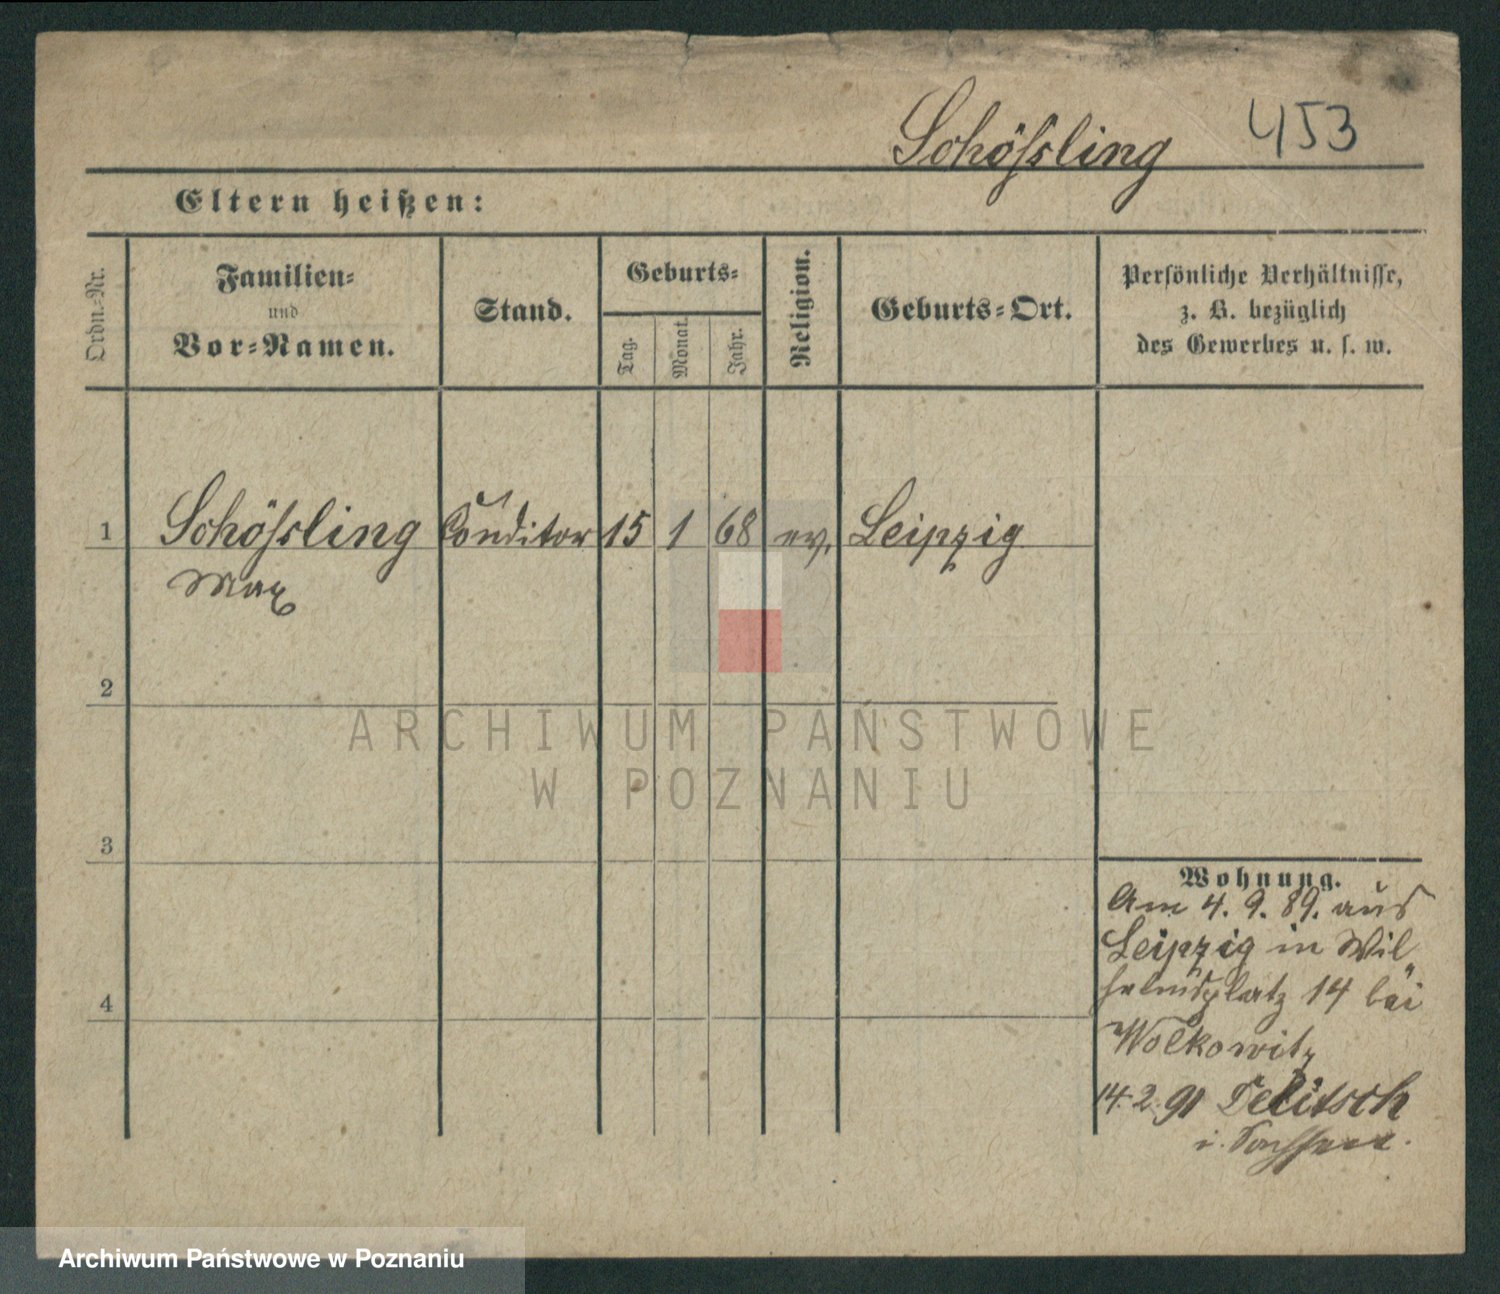 Schößling 453
Eltern heißen:
Ordn.-Nr.
Familien-
und
Vor-Namen.
Stand.
Geburts-
Tag.
Monat.
Jahr.
Religion.
Geburts-Ort.
Persönliche Verhältnisse,
z. B. bezüglich
des Gewerbes u. s. w.
1 Schößling Conditor 15 1 68 ev. Leipzig
Max
2
ARCHIWUM PAŃSTWOWE
W POZNANIU
3
Wohnung.
Am 4. 9. 89. aus
Leipzig in Wil„
helmsplatz 14 bei
Wolkowitz
4
14.2.91 Delitsch
i. Sachsen.
Archiwum Państwowe w Poznaniu